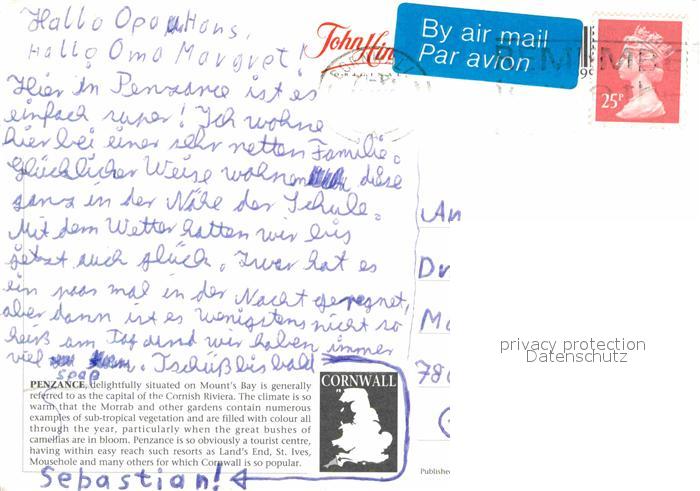 Hallo Opa Hans,
Hallo Oma Margret!
Hier in Penzance ist es
einfach super! Ich wohne
hier bei einer sehr netten Familie.
Glücklicher Weise wohnen diese
ganz in der Nähe der Schule.
Mit dem Wetter hatten wir bis
jetzt auch glück. Zwar hat es
ein paar mal in der Nacht geregnet,
aber dann ist es wenigstens nicht so
heiß am Tag und wir haben immer
viel spaß. Tschüß bis bald
Sebastian!
John Hin
By air mail
Par avion
25P
An
Dr
Ma
780
privacy protection
Datenschutz
PENZANCE, delightfully situated on Mount's Bay is generally
referred to as the capital of the Cornish Riviera. The climate is so
warm that the Morrab and other gardens contain numerous
examples of sub-tropical vegetation and are filled with colour all
through the year, particularly when the great bushes of
camellias are in bloom. Penzance is so obviously a tourist centre,
having within easy reach such resorts as Land's End, St. Ives,
Mousehole and many others for which Cornwall is so popular.
CORNWALL
Published